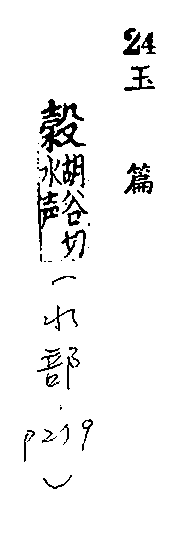 24
玉篇
胡谷切
水声
(水部.p219)